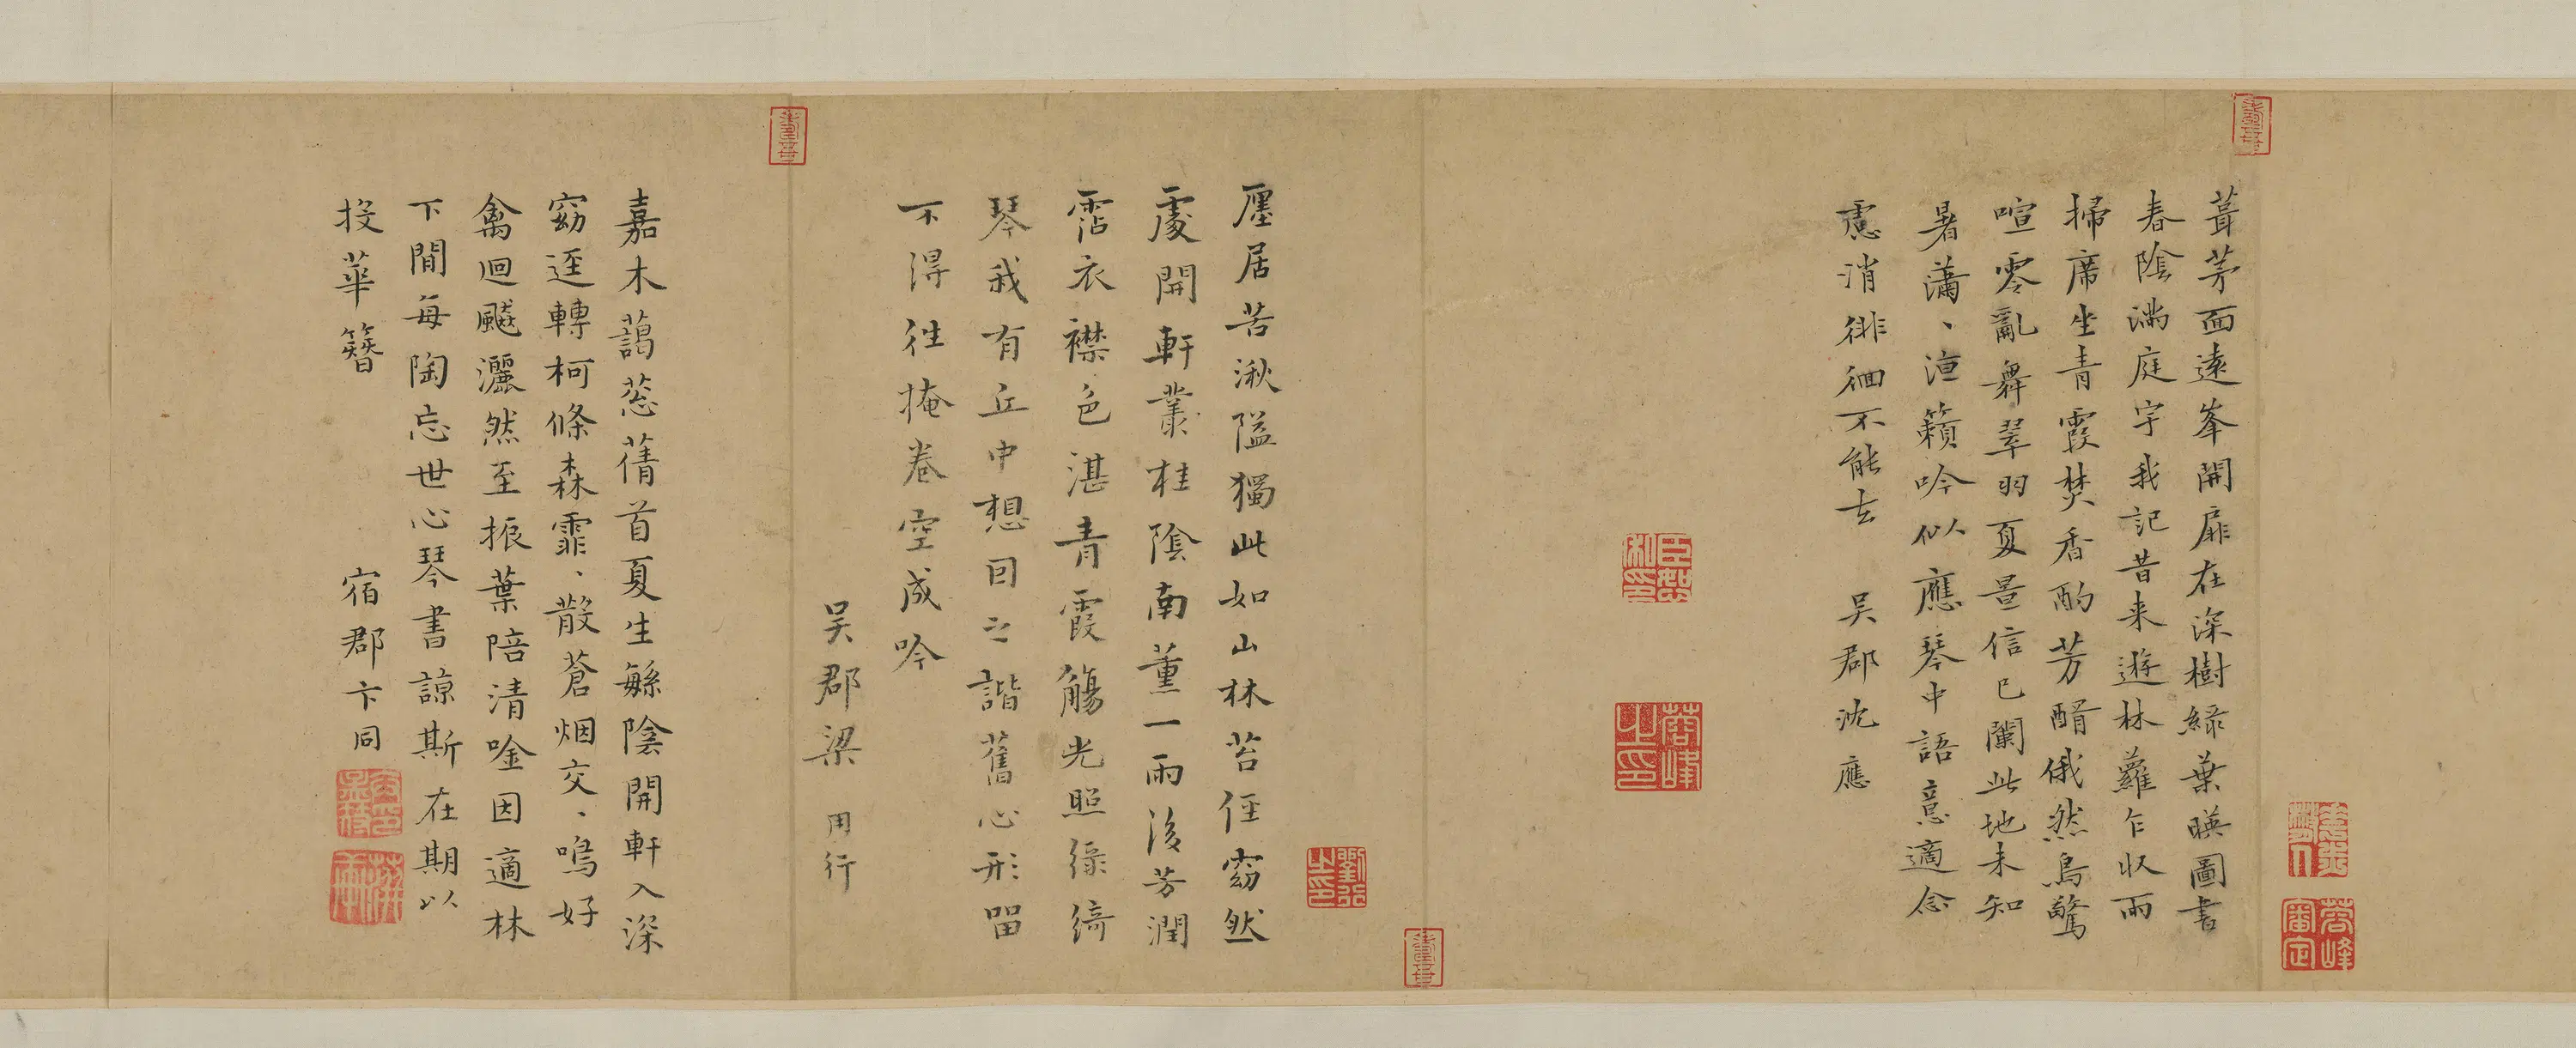 葺茅面遠峯開扉在深樹緑葉暎圖書
春陰滿庭宇我記昔来遊林蘿乍収雨
掃席坐青霞焚香酌芳醑俄然鳥驚
喧零亂舞翠羽夏景信已闌此地未知
暑蕭、洹籟吟似應琴中語意適念
慮消徘徊不能去
吴郡沈應
廛居苦湫隘獨此如山林苔径窈然
處開軒叢桂陰南薰一雨後芳潤
霑衣襟色湛青霞觴光照緑綺
琴我有丘中想囙之諧舊心形留
不得往掩卷空成吟
吴郡梁用行
嘉木藹葱蒨首夏生緐陰開軒入深
窈逕轉柯條森霏、散蒼烟交、鳴好
禽迴飈灑然至振葉陪清唫因適林
下閒每陶忘世心琴書諒斯在期以
投華簪
宿郡卞同
蒼峰之印
蒼峰審定